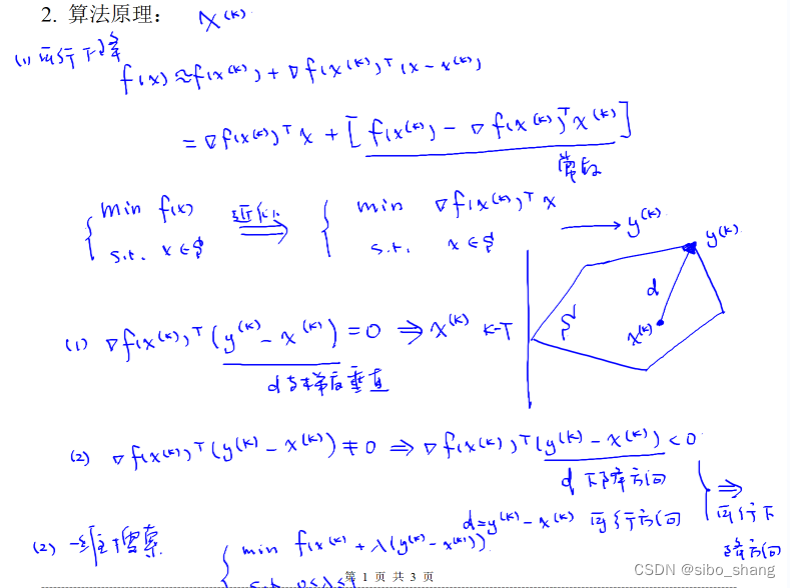 2. 算法原理： x^(k)
(1) 可行下降
f(x) ≈ f(x^(k)) + ∇f(x^(k))^T (x - x^(k))
= ∇f(x^(k))^T x + [f(x^(k)) - ∇f(x^(k))^T x^(k)]
常数
{ min f(x) 近似 ⟹ { min ∇f(x^(k))^T x
s.t. x ∈ S s.t. x ∈ S → y^(k)
y^(k)
d
S x^(k)
(1) ∇f(x^(k))^T (y^(k) - x^(k)) = 0 ⇒ x^(k) K-T
d与梯度垂直
(2) ∇f(x^(k))^T (y^(k) - x^(k)) ≠ 0 ⇒ ∇f(x^(k))^T (y^(k) - x^(k)) < 0
d 下降方向
d = y^(k) - x^(k) 可行方向
⇒ 可行下
降方向
(2) 一维搜索 { min f(x^(k) + λ(y^(k) - x^(k)))
s.t. 0≤λ≤1
第 1 页 共 3 页
CSDN @sibo_shang